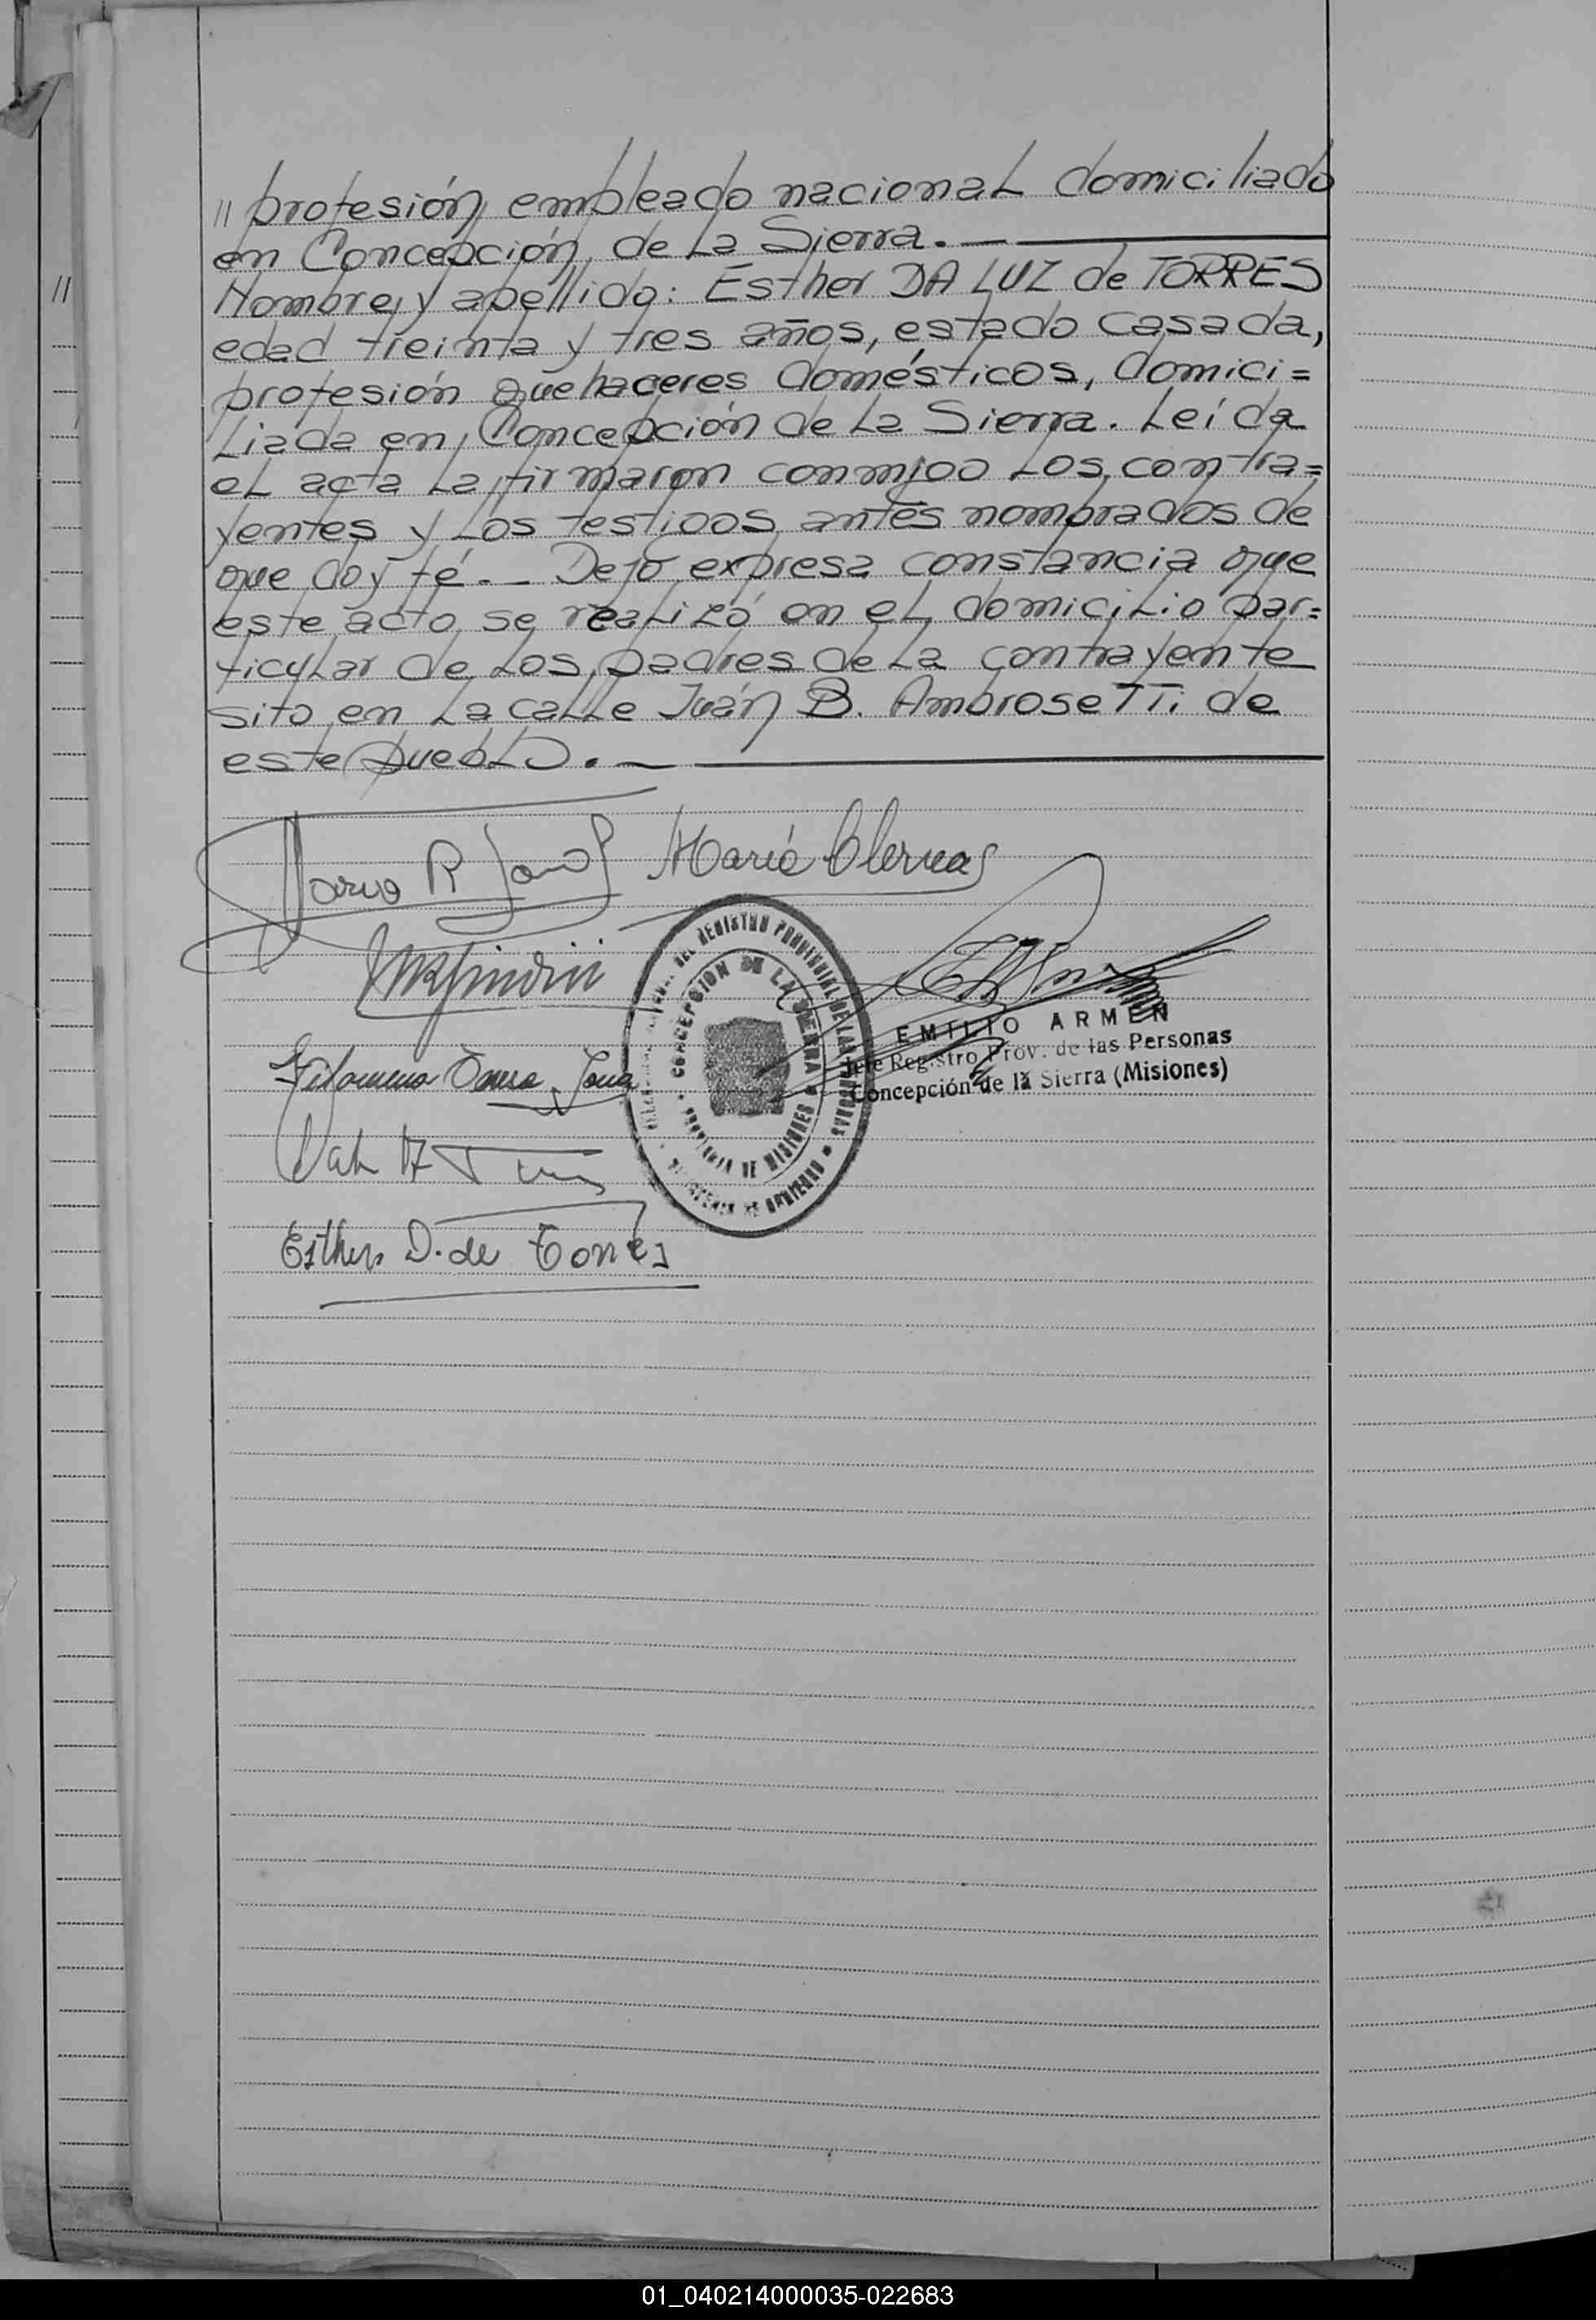 // profesión empleado nacional domiciliado
en Concepción de la Sierra. —
//
Nombre y apellido: Esther DA LUZ de TORRES
edad treinta y tres años, estado casada,
profesión quehaceres domésticos, domici=
liada en Concepción de la Sierra. Leída
el acta la firmaron conmigo los contra=
yentes y los testigos antes nombrados de
que doy fé. — Dejo expresa constancia que
este acto se realizó en el domicilio par=
ticular de los padres de la contrayente
sito en la calle Juán B. Ambrosetti de
este pueblo. —
María
REGISTRO PROVINCIAL DE LAS PERSONAS
CONCEPCION DE LA SIERRA
PROVINCIA DE MISIONES
EMILIO ARMEN
Jefe Registro Prov. de las Personas
Concepción de la Sierra (Misiones)
Esther D. de Torres
01_040214000035-022683